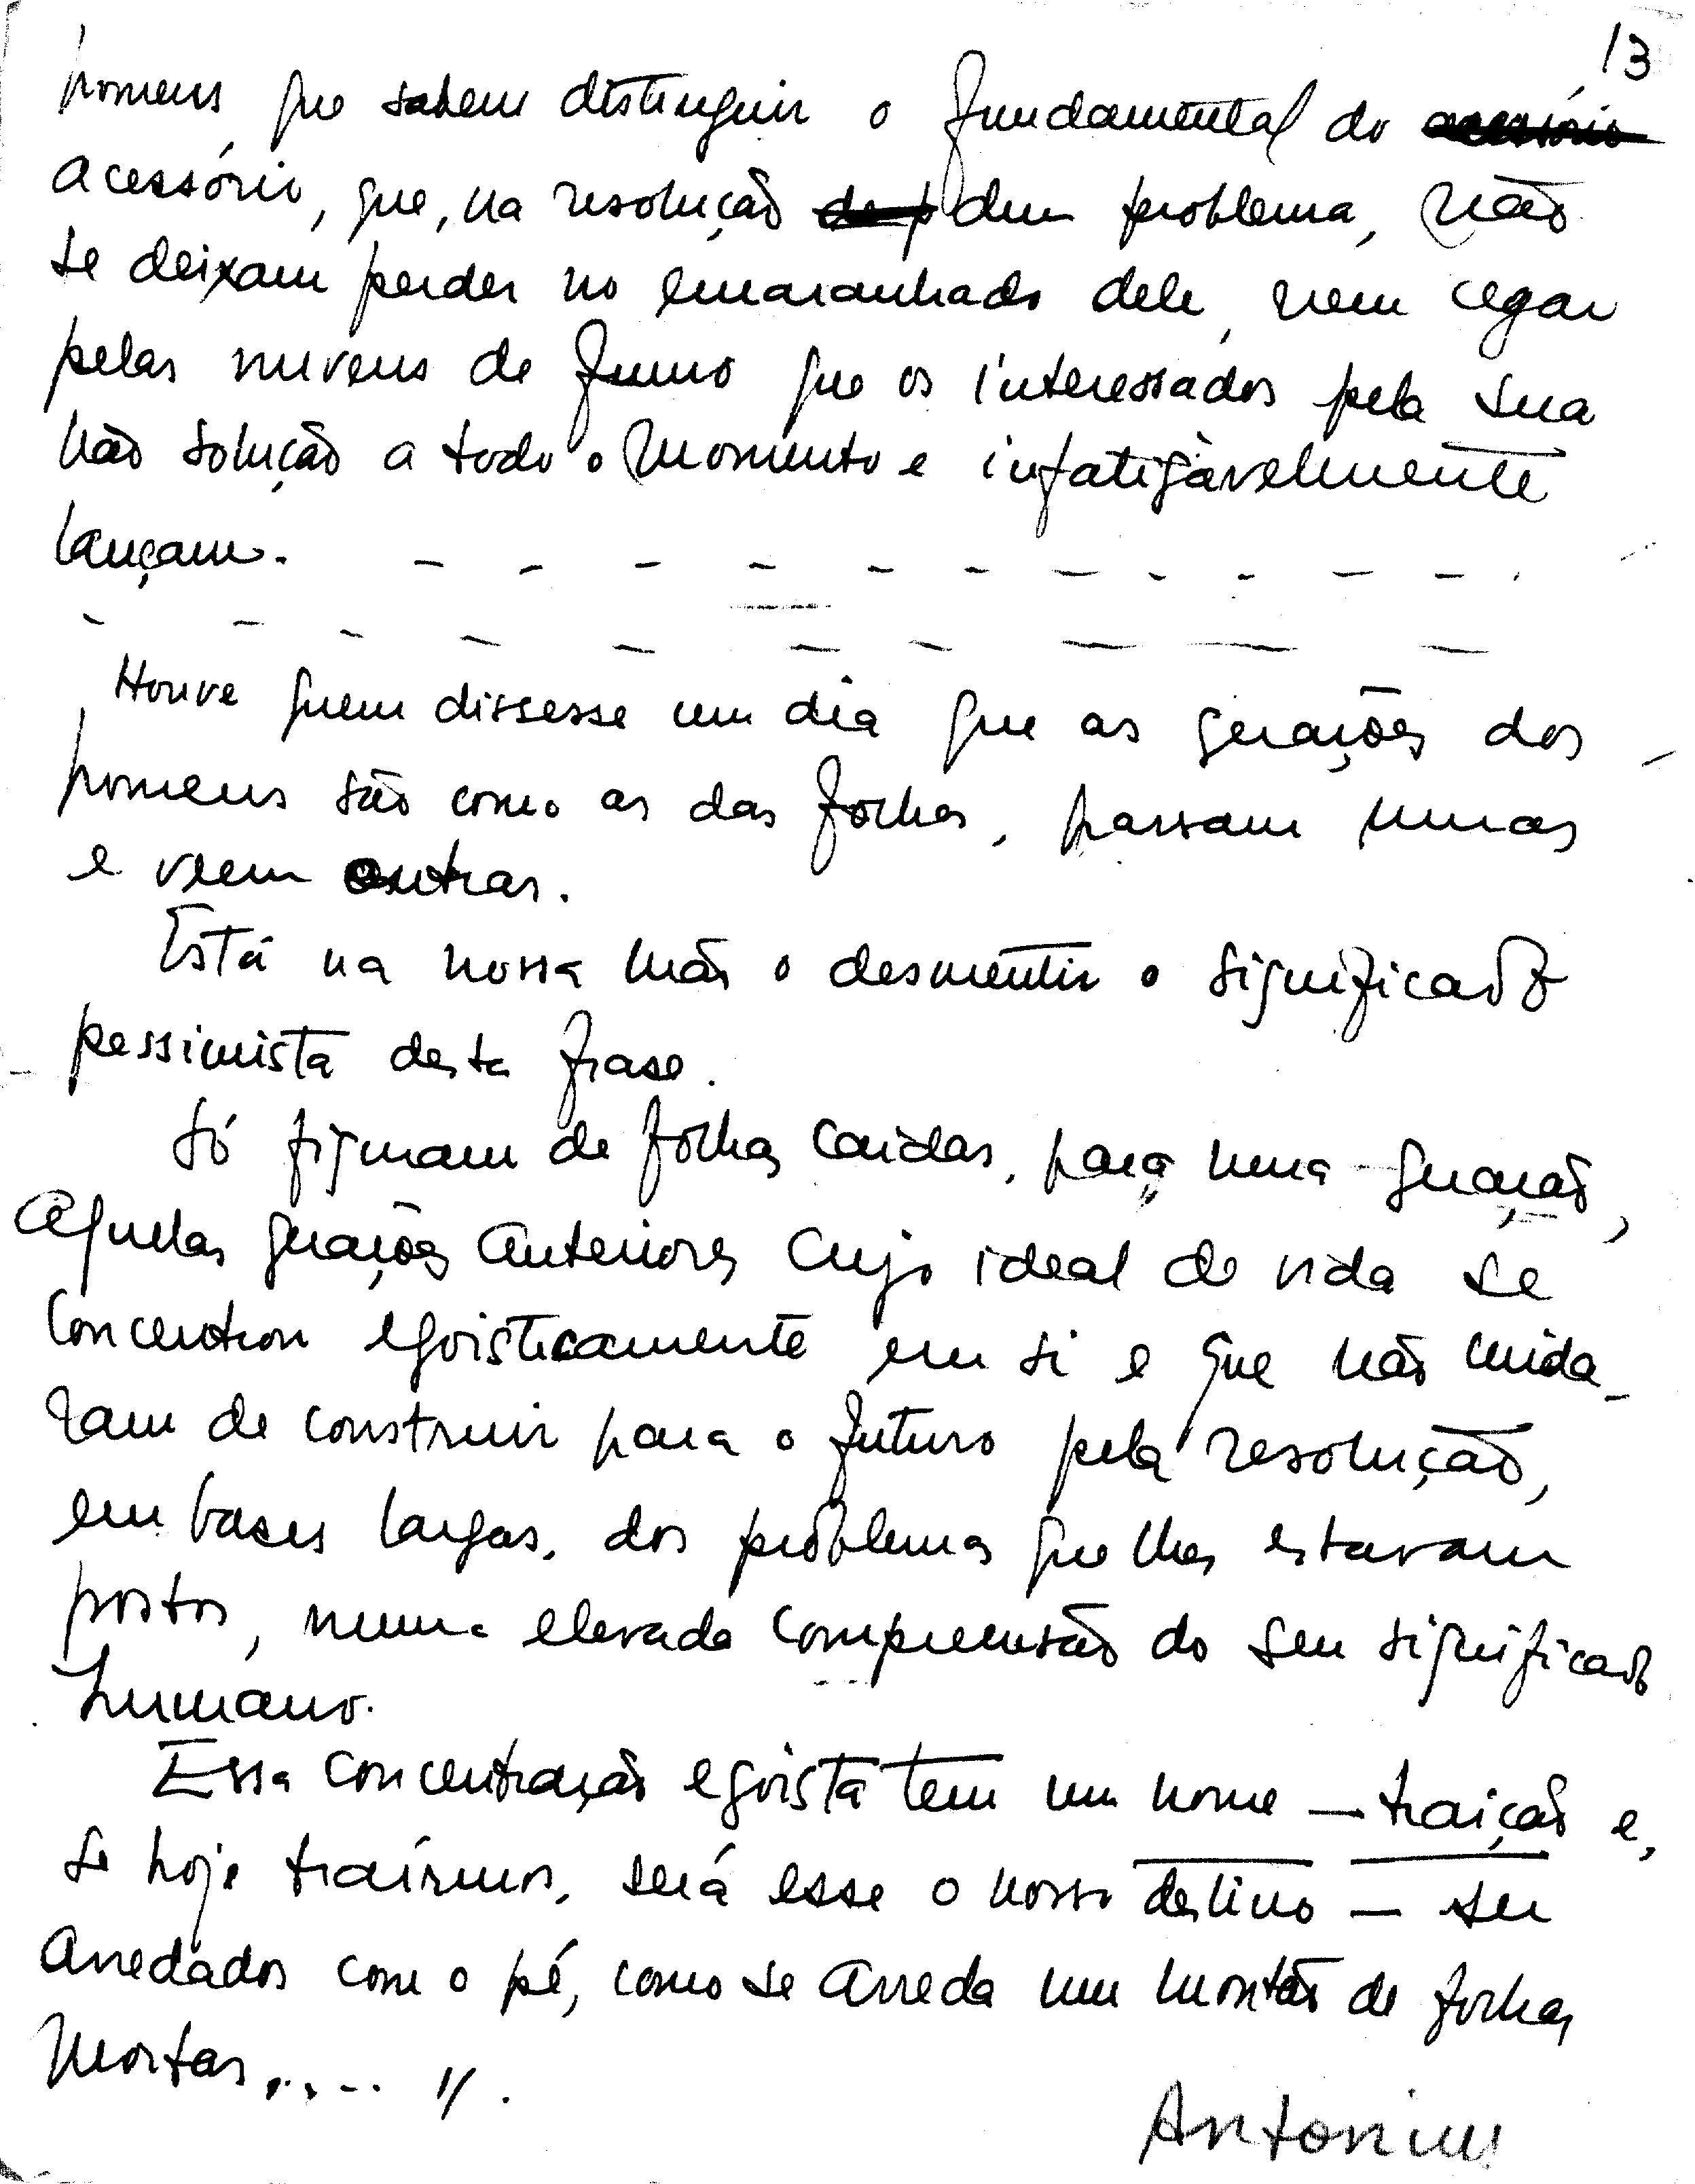 13
homens que sabem distinguir o fundamental do acessório
acessório, que, na resolução de p dum problema, não
se deixam perder no emaranhado dele, nem cegar
pelas nuvens de fumo que os interessados pela sua
não solução a todo o momento e infatigàvelmente
lançam. - - - - - - - - - - -
- - - - - - - - - -
Houve quem dissesse um dia que as gerações dos
homens são como as das folhas, passam umas
e veem outras.
Está na nossa mão o desmentir o significado
pessimista desta frase.
Só figuram de folhas caídas, para uma geração,
aquelas gerações anteriores cujo ideal de vida se
concentrou egoisticamente em si e que não cuida-
ram de construir para o futuro pela resolução,
em bases largas, dos problemas que lhes estavam
postos, numa elevada compreensão do seu significado
humano.
Essa concentração egoista tem um nome — traição e,
se hoje traírmos, será esse o nosso destino — ser
arredados com o pé, como se arreda um montão de folhas
mortas..... ".
Antonius